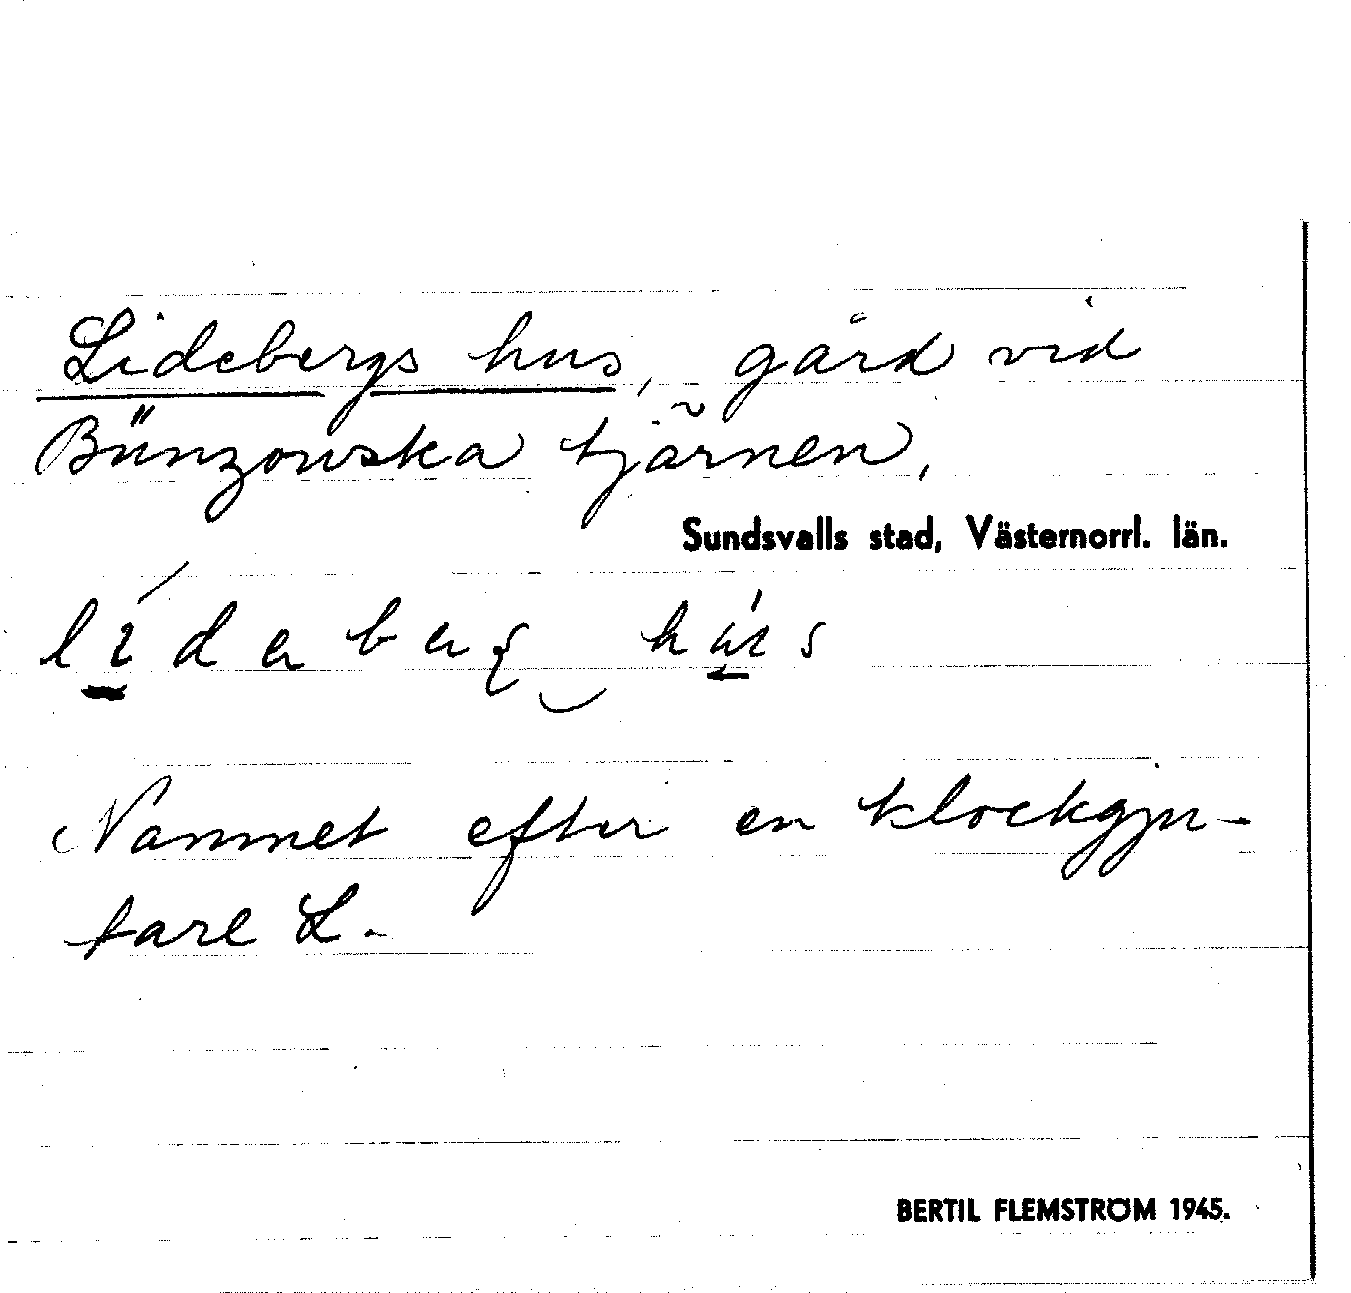 Lidebergs hus, gård vid
Bünzowska tjärnen,
Sundsvalls stad, Västernorrl. län.
Namnet efter en klockgju-
tare L.
BERTIL FLEMSTRÖM 1945.